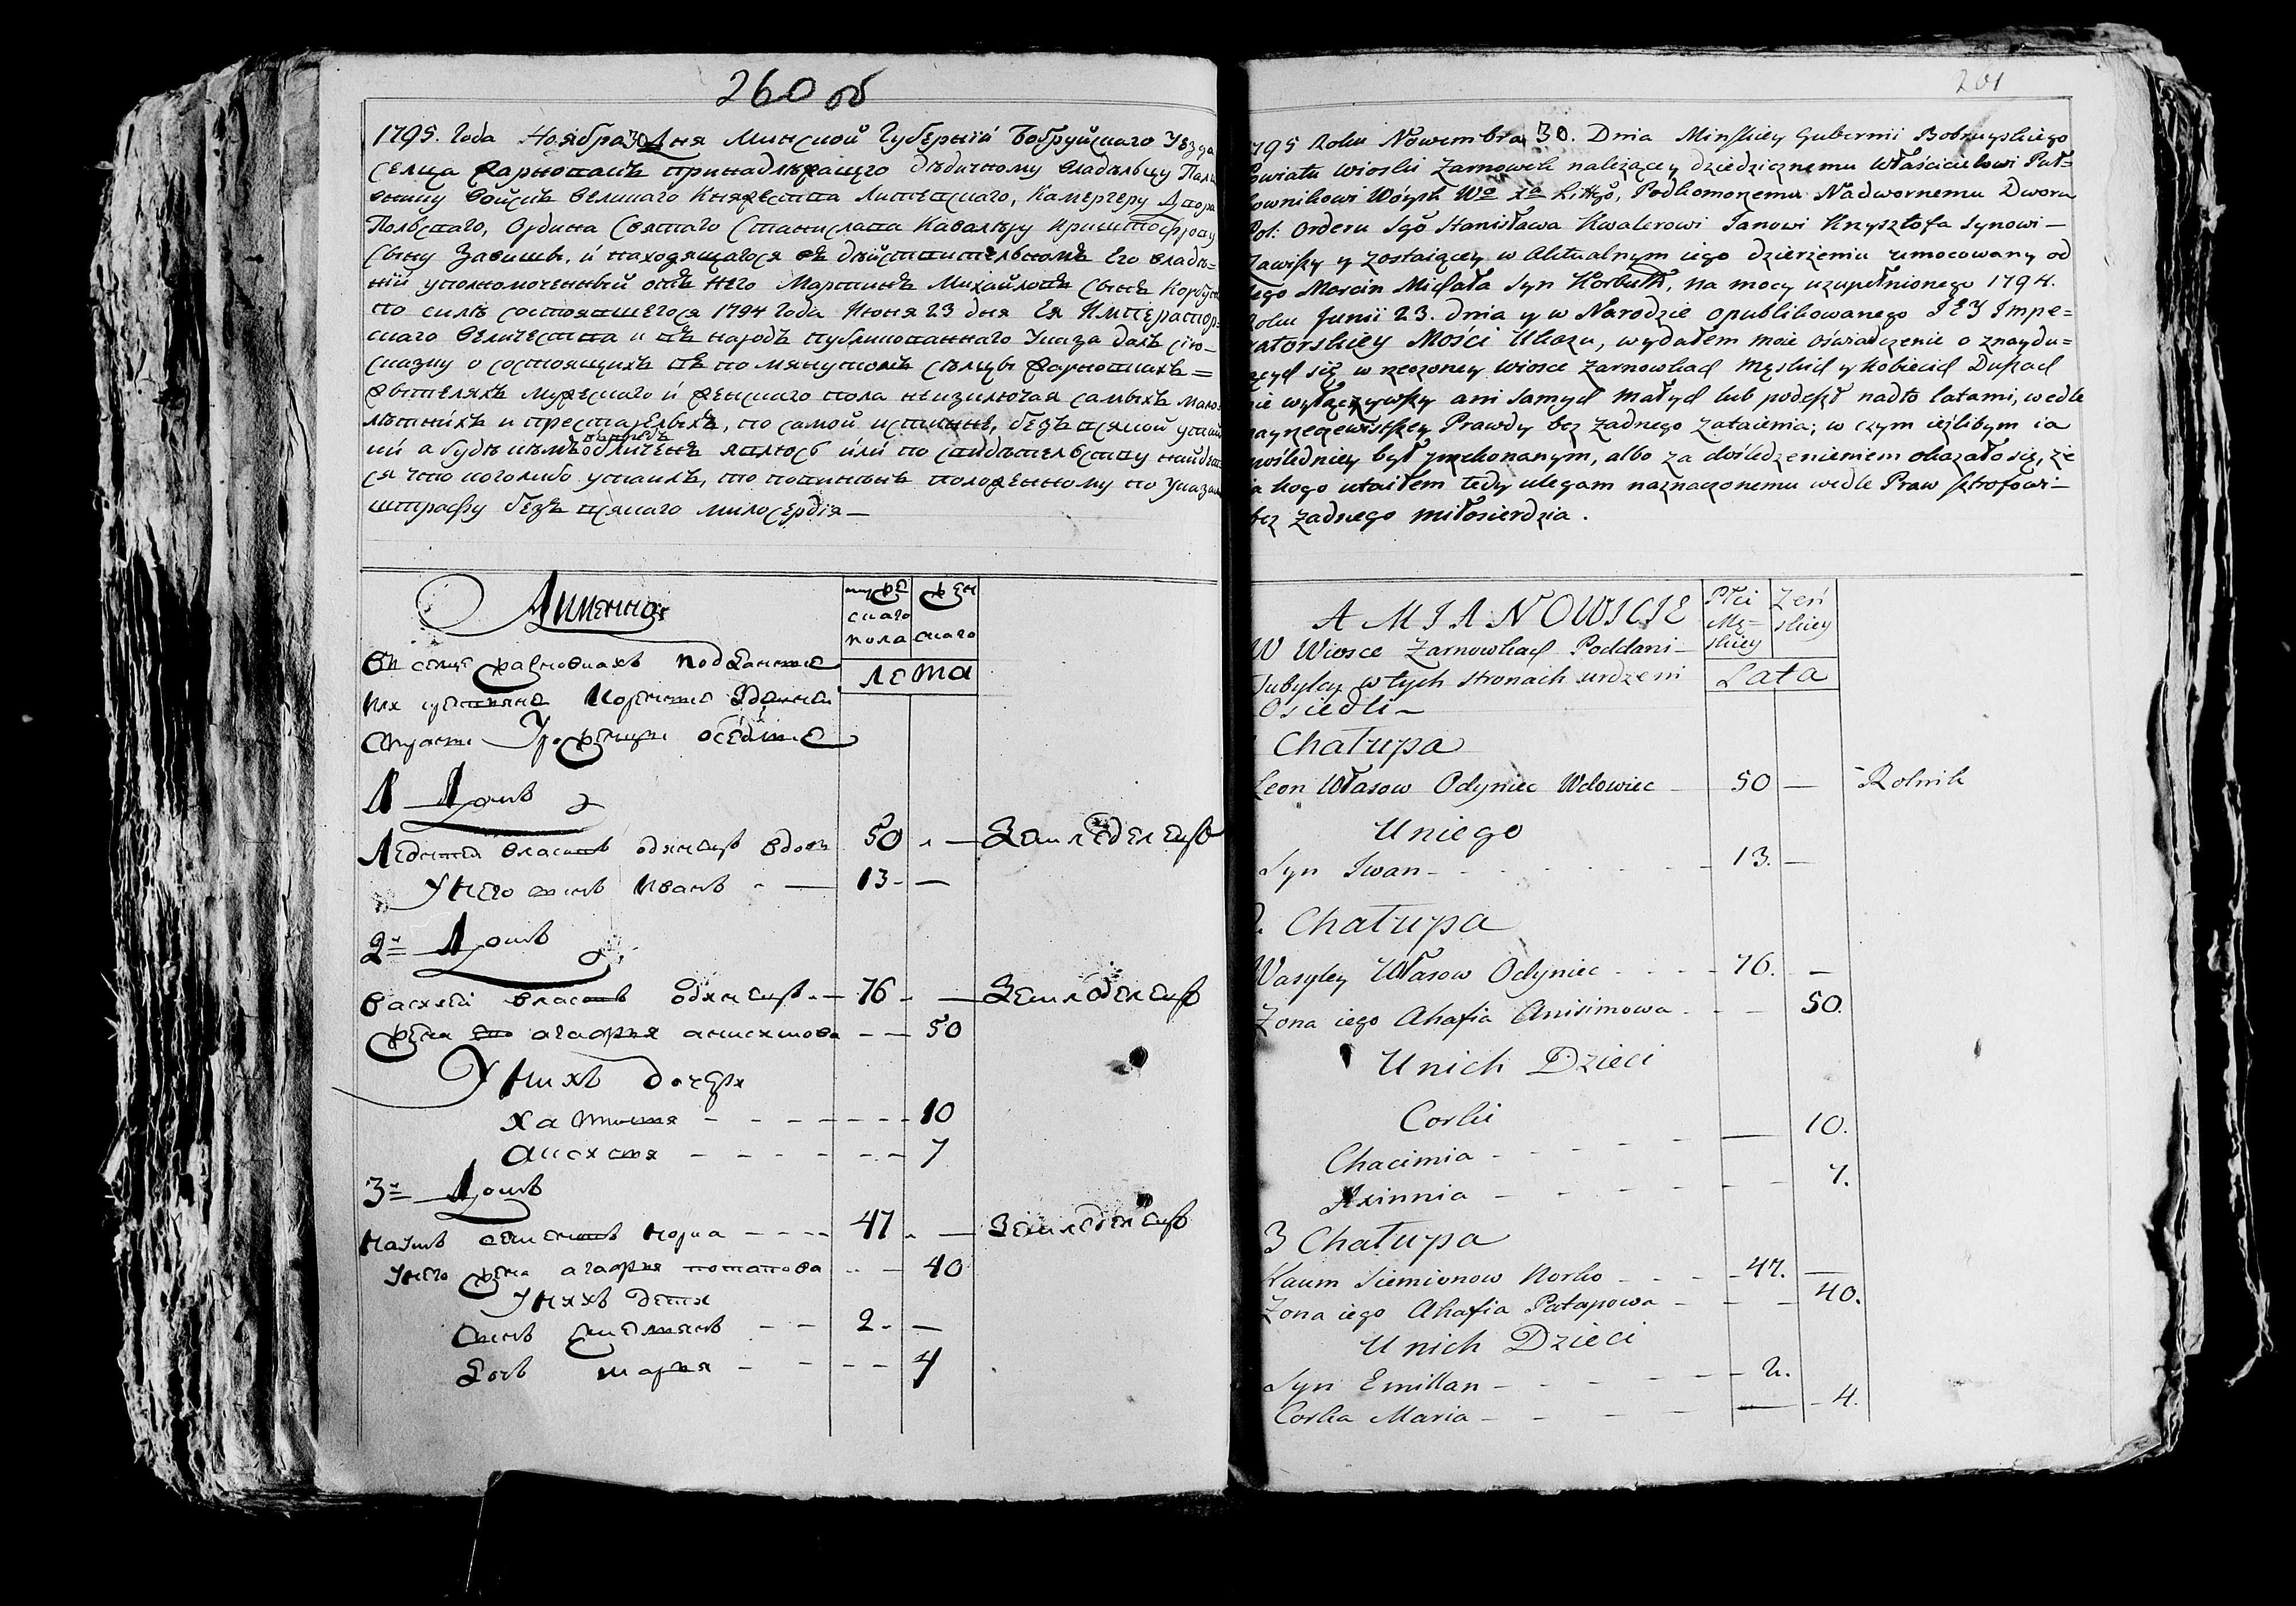 260 об
1795. Года Ноября 30 Дня Минской Губернїи Бобруйскаго Уезда
селца Жарновакъ принадлѣжащго дѣдичному владѣльцу Палк
овнику Войскъ Великаго Княжества Литевскаго, Камергеру Двора
Польскаго, Ордина Святаго Станислава Кавалѣру Криштофову
сыну Завишы, и находящагося въ дѣйствительномъ Его владѣ=
нїи уполномоченный отъ него Мартинъ Михайловъ сынъ Корбут
по силѣ состоявшегося 1794 Года Июня 23 дня Ея Император
скаго Величества и въ народъ публикованнаго Указа далъ сїю
сказку о состоящихъ въ помянутомъ сѣлцы Жарновкахъ =
жытеляхъ мужескаго и женскаго пола неизключая самыхъ мало
лѣтнихъ и престарелыхъ, по самой истиннѣ, безъ всякой утай
ки а буде въ чемъ впредь обличенъ явлюсь или по свидѣтельству найдет
ся что коголибо утаилъ, то повиненъ положенному по Указам
штрафу безъ всякаго милосердїя —
А именно
мужескаго пола
женскаго
лета
Въ селце Жарновкахъ подданые
Их крестяне Коренные Здешней
страны Урожденцы оседлые
1 Домъ
Леонтей Власовъ одинецъ вдовъ 50 — Земледелецъ
У него сынъ Иванъ — 13 —
2й Домъ
Василей Власовъ одинецъ — 76 — Земледелецъ
жена его агафия анисимова — — 50
У нихъ дочери
Хатимя — — — 10
аксиня — — — 7
3й Домъ
Наумъ семеновъ норка — — 47 — Земледелецъ
У него жена агафия потапова — 40
У нихъ дети
сынъ Емелянъ — — 2 —
Дочь мария — — — 4
261
1795 Roku Nowembra 30. Dnia Minskiey Gubernii Bobruyskiego
Powiatu Wioski Zarnowek należącey dziedzicznemu Właścicielowi Puł=
kownikowi Wóysk Wo Xa Littgo, Podkomorzemu Nadwornemu Dworu
Pol: Orderu Sgo Stanisława Kwalerowi Janowi Krzysztofa Synowi —
Zawiszy y zostaiącey w Aktualnym iego dzierżeniu umocowany od
Jego Marcin Michała Syn Korbutt, na mocy uzupełnionego 1794.
Roku Junii 23. dnia y w Narodzie opublikowanego JEY Impe=
ratorskiey Mości Ukazu, wydałem moie oświadczenie o znaydu=
iących się w rzeczoney Wiosce Zarnowkach Męskich y Kobiecich Duszach
nie wyłączywszy ani samych małych lub podeszł nadto latami, wedle
nayrzeczewistszey Prawdy bez żadnego zataienia; w czym ieżlibym ia
pośledniey był przekonanym, albo za dośledzenieniem okazało się, że
ia kogo utaiłem tedy ulegam naznaczonemu wedle Praw sztrofowi —
bez żadnego miłosierdzia.
A MIANOWICIE
Płci Mę=skiey
Żeńskiey
Lata
W Wiosce Zarnowkach Poddani
Tubylcy w tych stronach urdzeni
Osiedli —
1 Chałupa
Leon Własow Odyniec Wdowiec — 50 — Rolnik
U niego
Syn Iwan — 13. —
2. Chałupa
Wasyley Własow Odyniec — 76. —
Zona iego Ahafia Anisimowa — — 50.
U nich Dzieci
Corki
Chacimia — — 10.
Axinnia — — 7.
3 Chałupa
Naum Siemionow Norko — 47. —
Zona iego Ahafia Patapowa — — 40.
U nich Dzieci
Syn Emillan — 2.
Corka Maria — — 4.